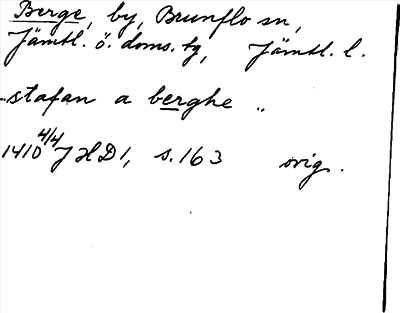 Berge, by, Brunflo sn,
Jämtl. ö. doms. tg, Jämtl. l.
"stafan a berghe "
1410 4/4 JHD1, s. 163 orig.